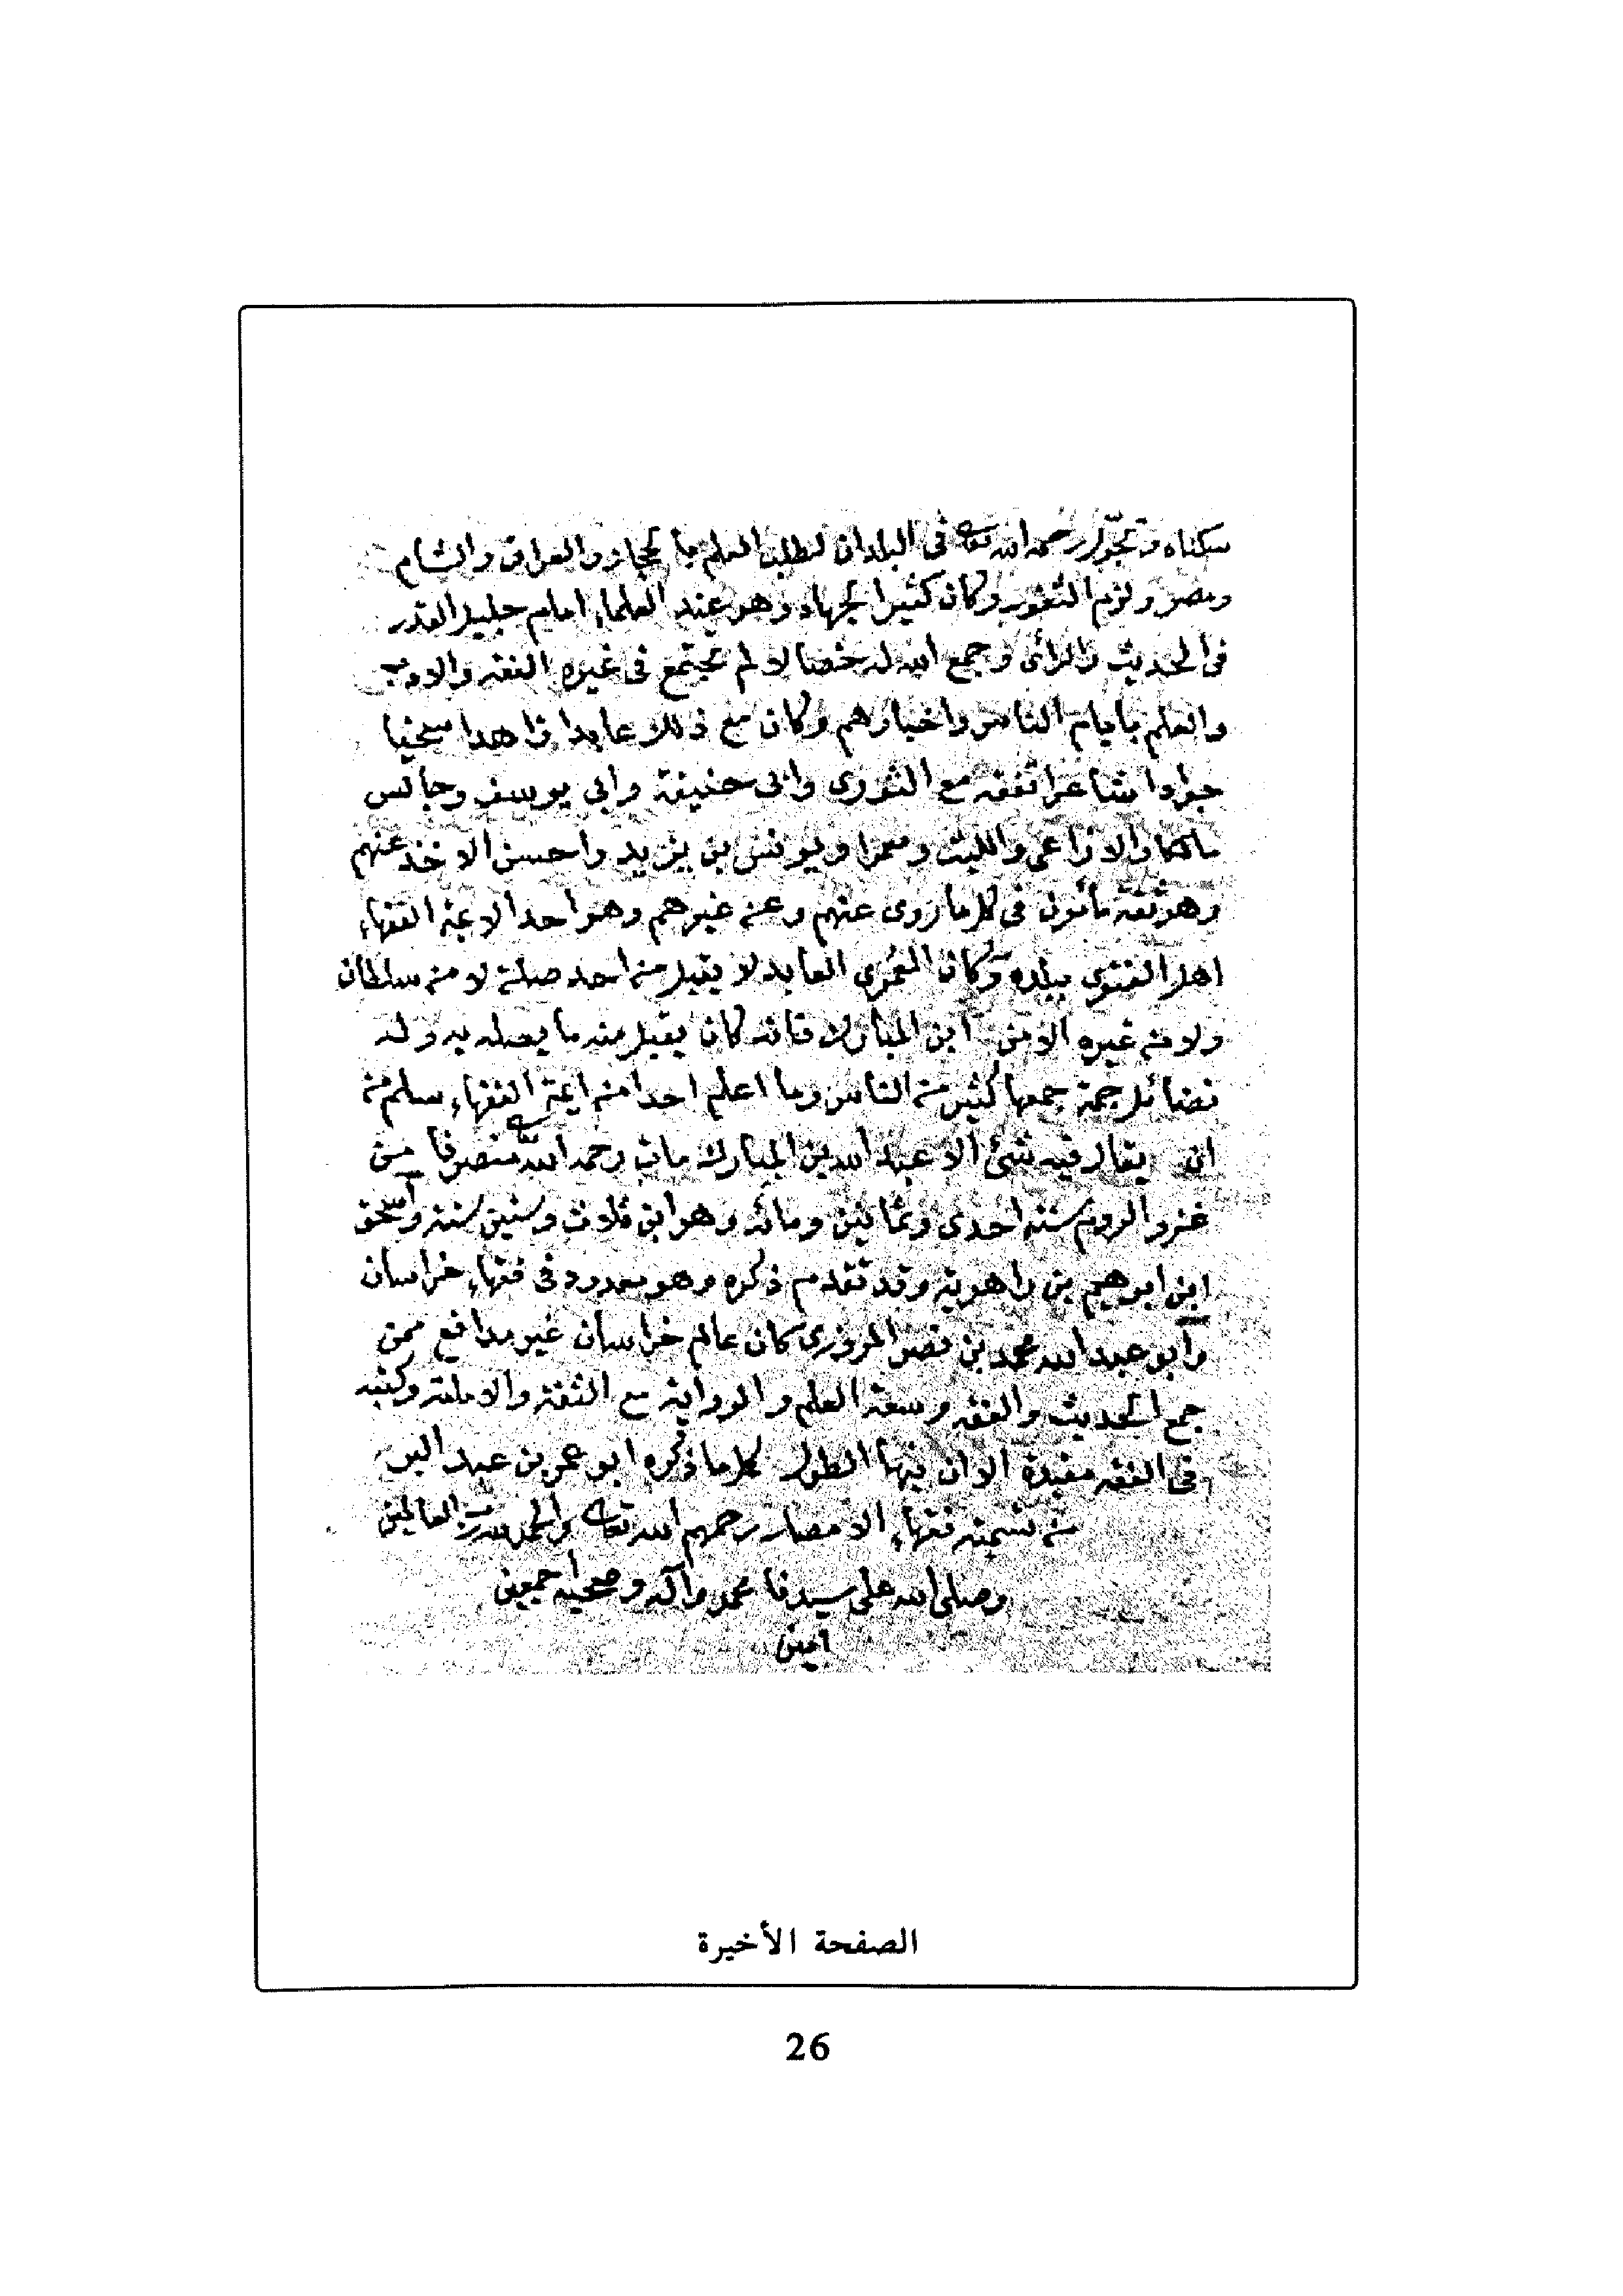 سكناه وتجوّل رحمه الله تعالى فى البلدان لطلب العلم بالحجاز والعراق والشام
ومصر ولزم الثغور وكان كثير الجهاد وهو عند العلماء امام جليل القدر
فى الحديث والرأى وجمع الله له خصالا لم تجتمع فى غيره الفقه والادب
والعلم بايام الناس واخبارهم وكان مع ذلك عابدا زاهدا سخيا
جوادا شاعرا تفقه مع الثورى وابى حنيفة وابى يوسف وجالس
مالكا والاوزاعى والليث ومعمرا ويونس بن يزيد واحسن الاخذ عنهم
وهو ثقة مأمون فى كل ما روى عنهم وعن غيرهم وهو احد الائمة الفقهاء
اهل الفتوى ببلده وكان العُمرى العابد لا يقبل من احد صلة لا من سلطان
ولا من غيره الا من ابن المبارك فانه كان يقبل منه ما يصله به وله
فضائل جمة جمعها كثير من الناس وما اعلم احدا من ايمة الفقهاء سلم من
ان يقال فيه شئ الا عبد الله بن المبارك مات رحمه الله تعالى منصرفا من
غزو الروم سنة احدى وثمانين ومائة وهو ابن ثلاث وستين سنة واسحق
ابن ابرهيم بن راهوية وقد تقدم ذكره وهو معدود فى فقهاء خراسان
وابو عبد الله محمد بن نصر المروزى كان عالم خراسان غير مدافع ممن
جمع الحديث والفقه وسعة العلم والرواية مع الثقة والامانة وكتبه
فى الفقه مفيدة الا ان فيها الطول كل ما ذكره ابو عمر بن عبد البر
من تسمية فقهاء الامصار رحمهم الله تعالى والحمد لله رب العالمين
وصلى الله على سيدنا محمد وآله وصحبه اجمعين
امين
الصفحة الأخيرة
26